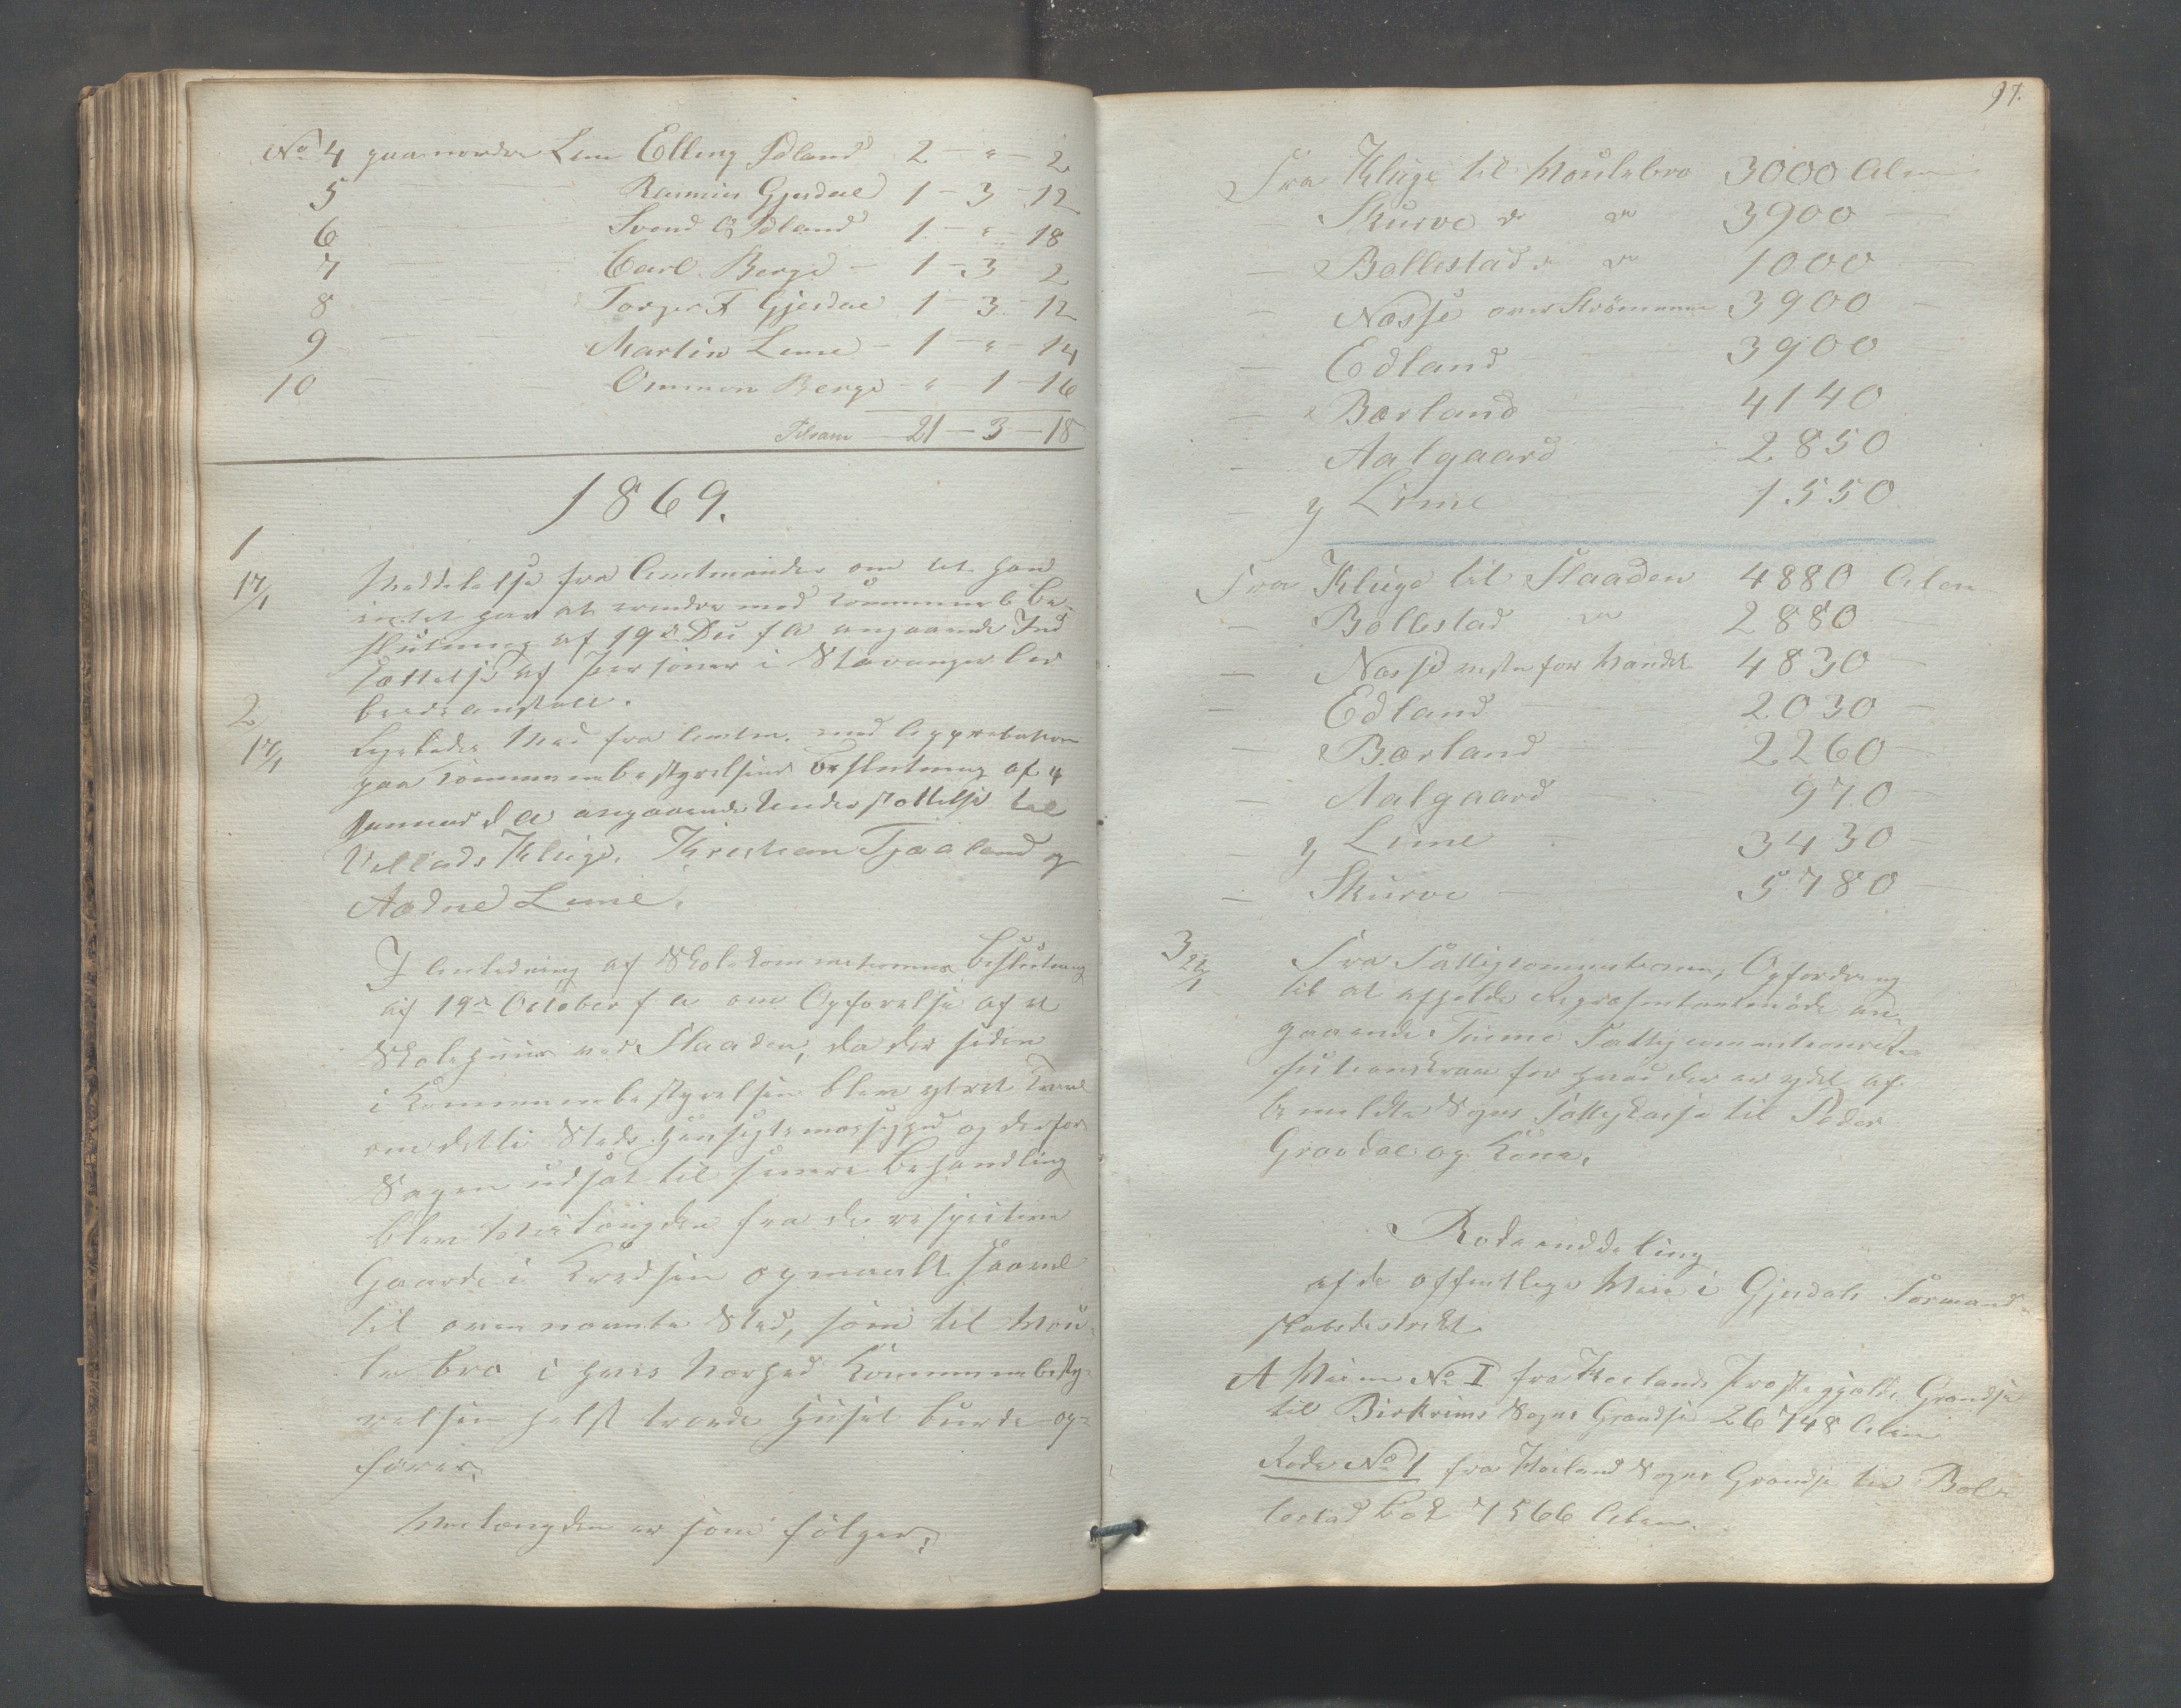 No 4 paa nordre Lime Elling Edland 2 - " - 2
5 — — Rasmus Gjesdal 1 - 3 - 12
6 — — Svend O Edland 1 - " - 18
7 — — Carl Berge - 1 - 3 - 2
8 — — Torger T Gjesdal 1 - 3 - 12
9 — — Martin Lime - 1 - " - 14
10 — — Ommon Berge - " 1 - 16
Tilsam — 21 - 3 - 18
1869.
1
17/1 Meddelelse fra Amtmanden om at han
intet har at erindre mod Kommuneb. Be-
slutning af 19de Dec f A angaaende Ind
sættelse af Personer i Stavanger Ar
beidsanstalt.
2
17/1 Ligeledes Med fra Amtm. med Approbation
paa Kommunebestyrelsens Beslutning af 4
Januar d A angaaende Understøttelse til
Vellads Kluge, Kristian Tjaaland og
Aadne Lime.
I Anledning af Skolekommissionens Beslutning
af 19de October f A om Opførelse af et
Skolehuus ved Flaaden, da der siden
i Kommunebestyrelsen blev ytret Tvivl
om dette Steds Hensigtsmæssighed og derfor
Sagen udsat til senere Behandling
blev Veilængden fra de respective
Gaarde i Kredsen opmaalt saavel
til ovennævnte Sted, som til Mou-
lebro i hvis Nærhed Kommunebesty-
relsen helst troede Huset burde op-
føres.
Veilængden er som følger:
97.
Fra Kluge til Moulebro 3000 Alen
— Skurve do do 3900 —
— Bollestad do do 1000 —
— Næsse over Strømmen 3900 —
— Edland — 3900 —
— Bærland — 4140
— Aalgaard — 2850
— y Lime 1550
Fra Kluge til Flaaden 4880 Alen
— Bollestad do 2880 —
— Næsse vesten for Vandet 4830 —
— Edland — 2030 —
— Bærland — 2260 —
— Aalgaard — 970 —
— y Lime — 3430 —
— Skurve — 5780 —
3
22/1 Fra Fattigcommissionen, Opfordring
til at afholde Repræsentantmøde an-
gaaende Time Fattigcommissions Re-
fusionskrav for hvad der er ydet af
bemeldte Sogns Fattigkasse til Peder
Graadal og Kone.
Rodeinddeling
af de offentlige Veie i Gjesdals Formand-
skabsdistrikt.
A Veien No I fra Høilands Præstegjelds Grændse
til Birkrims Sogns Grændse 26748 Alen
Rode No 1 fra Høiland Sogns Grændse til Bol-
lestad Bæk 7566 Alen.